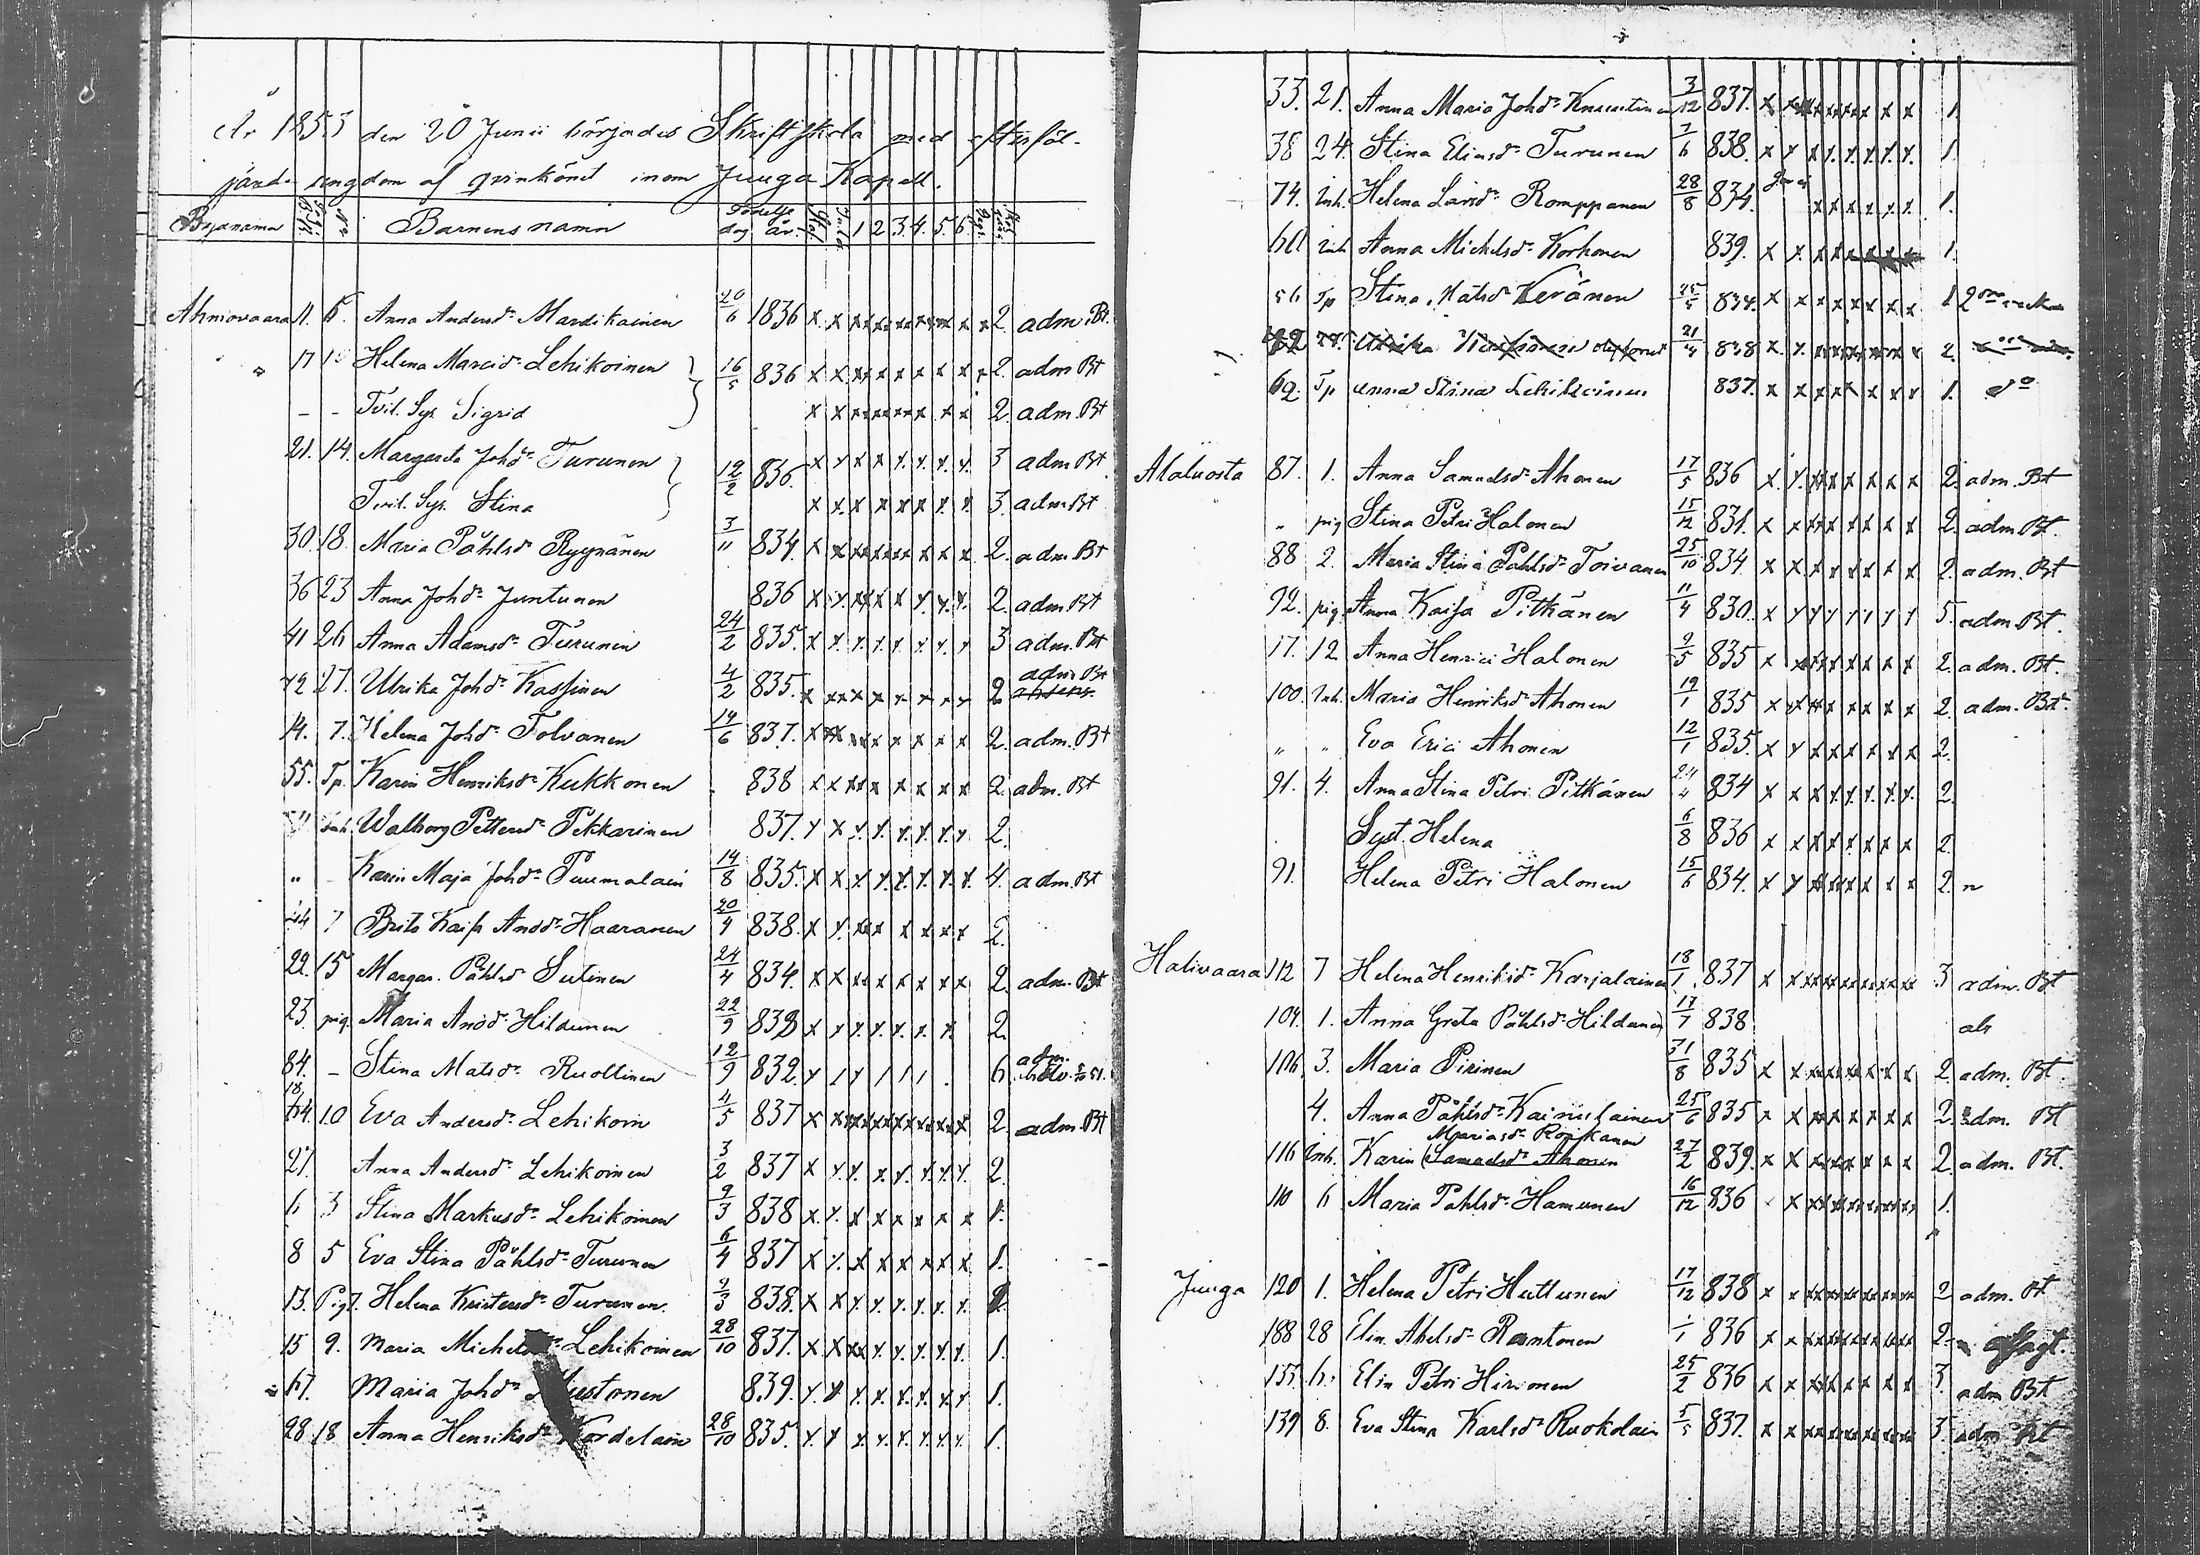 År 1853 den 20 Junii börjades Skriftskola med efterföl-
jande ungdom af qvinkönet inom Juuga Kapell.
Byanamn N:r Barnens namn Födelse dag år 1 2 3. 4. 5. 6
Ahmovaara 11. 6. Anna Andersd:r Mardikainen 20/6 1836 x x x x x x x x x x 2. adm. Bt.
" 17 Helena Marcid:r Lehikoinen 16/5 836 x x x x x x x x x 2. adm Bt
- - Tvil. Sys Sigrid x x x x x x x x x 2. adm. Bt
21. 14. Margareta Johd:r Turunen 12/2 836. x x x x x x x x 3 adm Bt
Tvil. Sys. Stina x x x x x x x x 3. adm Bt
30. 18. Maria Påhlsd:r Ryynänen 3/11 834. x x x x x x x x x 2. adm. Bt
36 23 Anna Johd:r Juntunen 836 x x x x x x x x 2. adm Bt
41 26 Anna Adamsd:r Turunen 24/2 835. x x x x x x x x 3 adm. Bt
42 27. Ulrika Johd:r Kassinen 4/2 835. x x x x x x x x x 2 adm Bt
14. 7. Helena Johd:r Tolvanen 14/6 837. x x x x x x x x x 2. adm. Bt
55. Tp. Karin Henriksd:r Kukkonen 838 x x x x x x x x x 2. adm. Bt
" inh. Walborg Pettersd:r Pekkarinen 837. x x x x x x x x 2.
" - Karin Maja Johd:r Puumalain 14/8 835. x x x x x x x x 4. adm. Bt
44 7 Brita Kaisa Andd:r Haaranen 20/4 838. x x x x x x x x x 2.
22. 15 Margar. Påhlsd Sutinen 24/4 834. x x x x x x x x 2. adm. Bt
23. pig. Maria Andd:r Hildunen 22/9 839 x x x x x x x 2.
84. - Stina Matsd:r Ruottinen 12/9 832. 6 adm.
10. Eva Andersd:r Lehikoin 4/5 837 x x x x x x x x x x 2. adm. Bt
27. Anna Andersd:r Lehikoinen 3/2 837 x x x x x x x x 2.
6 3 Stina Markusd:r Lehikoinen 9/3 838 x x x x x x x x 1.
8 5 Eva Stina Påhlsd:r Turunen 6/4 837 x x x x x x x x 1.
13. Pig. Helena Kristersd:r Turunen. 9/3 838. x x x x x x x x 2.
15 9. Maria Michelsd:r Lehikoinen 28/10 837. x x x x x x x x 1.
67. Maria Johd:r Mustonen 839. x x x x x x x x 1.
28. 18 Anna Henriksd:r Kärdelain 28/10 835. x x x x x x x x 1.
33. 21. Anna Maria Johd:r Knuutinen 3/12 837. x x x x x x x x x 1.
38 24. Stina Eliasd:r Turunen 7/6 838. x x x x x x x x 1.
74. Inh. Helena Larsd:r Romppanen 28/8 834. x x x x x x 1.
60. Inh Anna Michelsd:r Korhonen 839. x x x x x x x x 1.
56 Tp Stina Matsd:r Keränen 25/5 834. x x x x x x x x 1
Ulrika 21/4 838 x x x x x x x x x 2.
62. Tp Anna Stina Lehikoinen 837. x x x x x x x x 1. d:o
Maluosta 87. 1. Anna Samuelsd:r Ahonen 17/5 836 x x x x x x x x x 2. adm. Bt
" pig Stina Petri Halonen 15/12 831. x x x x x x x x x 2. adm Bt.
88 2. Maria Stina Påhlsd:r Toivanen 25/10 834. x x x x x x x x 2. adm. Bt
92. pig. Anna Kaisa Pitkänen 11/4 830. x x x x x x x x 5. adm Bt.
17. 12 Anna Henrici Halonen 9/5 835 x x x x x x x x x 2. adm. Bt.
100. Inh. Maria Henriksd:r Ahonen 19/1 835 x x x x x x x x x 2. adm. Bt.
" " Eva Erici Ahonen 12/1 835. x x x x x x x x 2.
91. 4. Anna Stina Petri Pitkänen 24/4 834 x x x x x x x x 2.
Syst. Helena 6/8 836 x x x x x x x x 2.
91. Helena Petri Halonen 15/6 834. x x x x x x x x x 2.
Halivaara 112 7 Helena Henriksd:r Karjalainen 18/1 837 x x x x x x x x x x 3 adm. Bt
104. 1. Anna Greta Påhlsd:r Hildunen 17/7 838
106. 3. Maria Pirinen 31/8 835 x x x x x x x x x 2. adm. Bt.
4. Anna Påhlsd:r Kainulainen 25/6 835 x x x x x x x x x 2. adm. Bt
Mariasd:r
116 Inh. Karin Samuelsd:r Ahonen 27/2 839. x x x x x x x x x 2. adm. Bt.
110 6 Maria Påhlsd:r Hamunen 16/12 836 x x x x x x x x x 1.
Juuga 120 1. Helena Petri Huttunen 17/12 838 x x x x x x x x x x 2 adm. Bt
188 28 Elin Abelsd:r Rantonen 1/1 836 x x x x x x x x x x 2.
155. 6. Elin Petri Hirvonen 25/2 836 x x x x x x x x x 3. adm Bt
139 8. Eva Stina Karlsd:r Ruokolain 5/5 837. x x x x x x x x x x 3. adm Bt